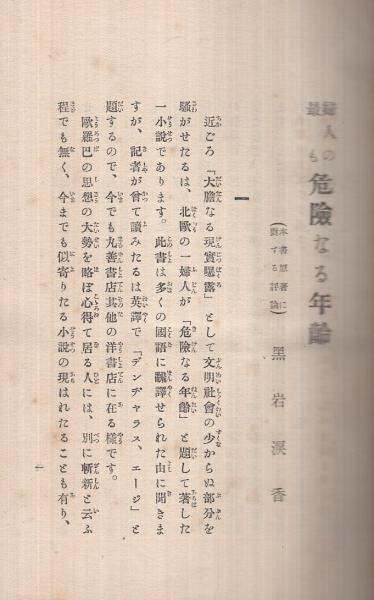 婦人の最も危險なる年齡
(本書原著に對する評論)
黑岩淚香
一
近ごろ「大膽なる現實曝露」として文明社會の少からぬ部分を
騷がせたるは、北歐の一婦人が「危險なる年齡」と題して著した
一小說であります。此書は多くの國語に飜譯せられた由に聞きま
すが、記者が曾て讀みたるは英譯で「デンヂャラス、エージ」と
題するので、今でも丸善書店其他の洋書店に在る樣です。
歐羅巴の思想の大勢を略ぼ心得て居る人には、別に斬新と云ふ
程でも無く、今までも似寄りたる小說の現はれたることも有り、
一